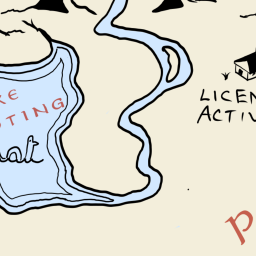 KE
OTING
hat
LICEN
ACTIV
P